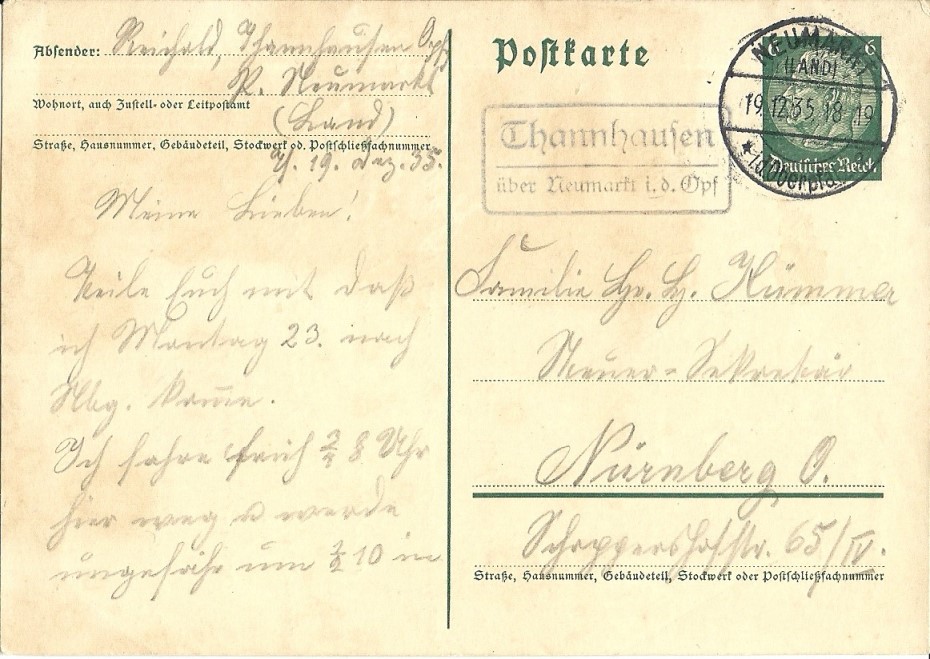 Absender: Reichold, Thannhausen Opf.
P. Neumarkt
Wohnort, auch Zustell- oder Leitpostamt
(Land)
Straße, Hausnummer, Gebäudeteil, Stockwerk od. Postschließfachnummer
19. Dez. 35.
Meine Lieben!
Teile Euch mit daß
ich Montag 23. nach
Nbg. kom̅e.
Ich fahre früh ¾ 8 Uhr
hier weg u werde
ungefähr um ¾ 10 in
Postkarte
6
Deutsches Reich
NEUMARKT
(LAND)
19.12.35.18-19
Thannhausen
über Neumarkt i. d. Opf
Familie Hr. H. Kümmer
Steuer-Sekretär
Nürnberg O.
Schoppershofstr. 65/IV.
Straße, Hausnummer, Gebäudeteil, Stockwerk oder Postschließfachnummer